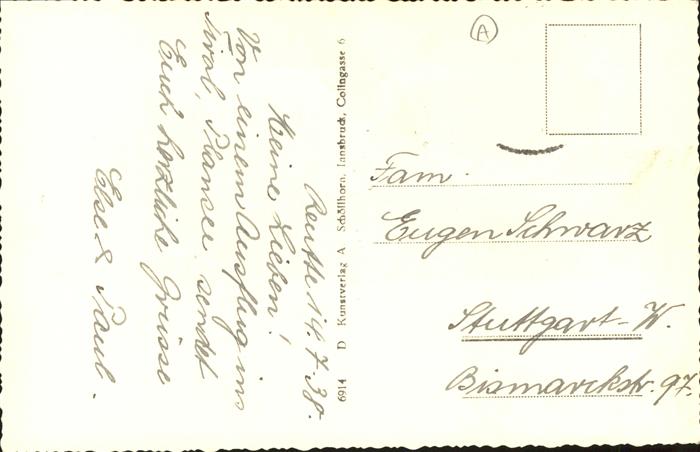 Reutte 14.7.38.
Meine Lieben!
Von einem Ausflug ins
Tirol, Plansee sendet
Euch herzliche Grüsse
Else & Paul.
6914 D Kunstverlag A Schöllhorn, Innsbruck, Collngasse 6
A
Fam.
Eugen Schwarz
Stuttgart-W.
Bismarckstr. 97.